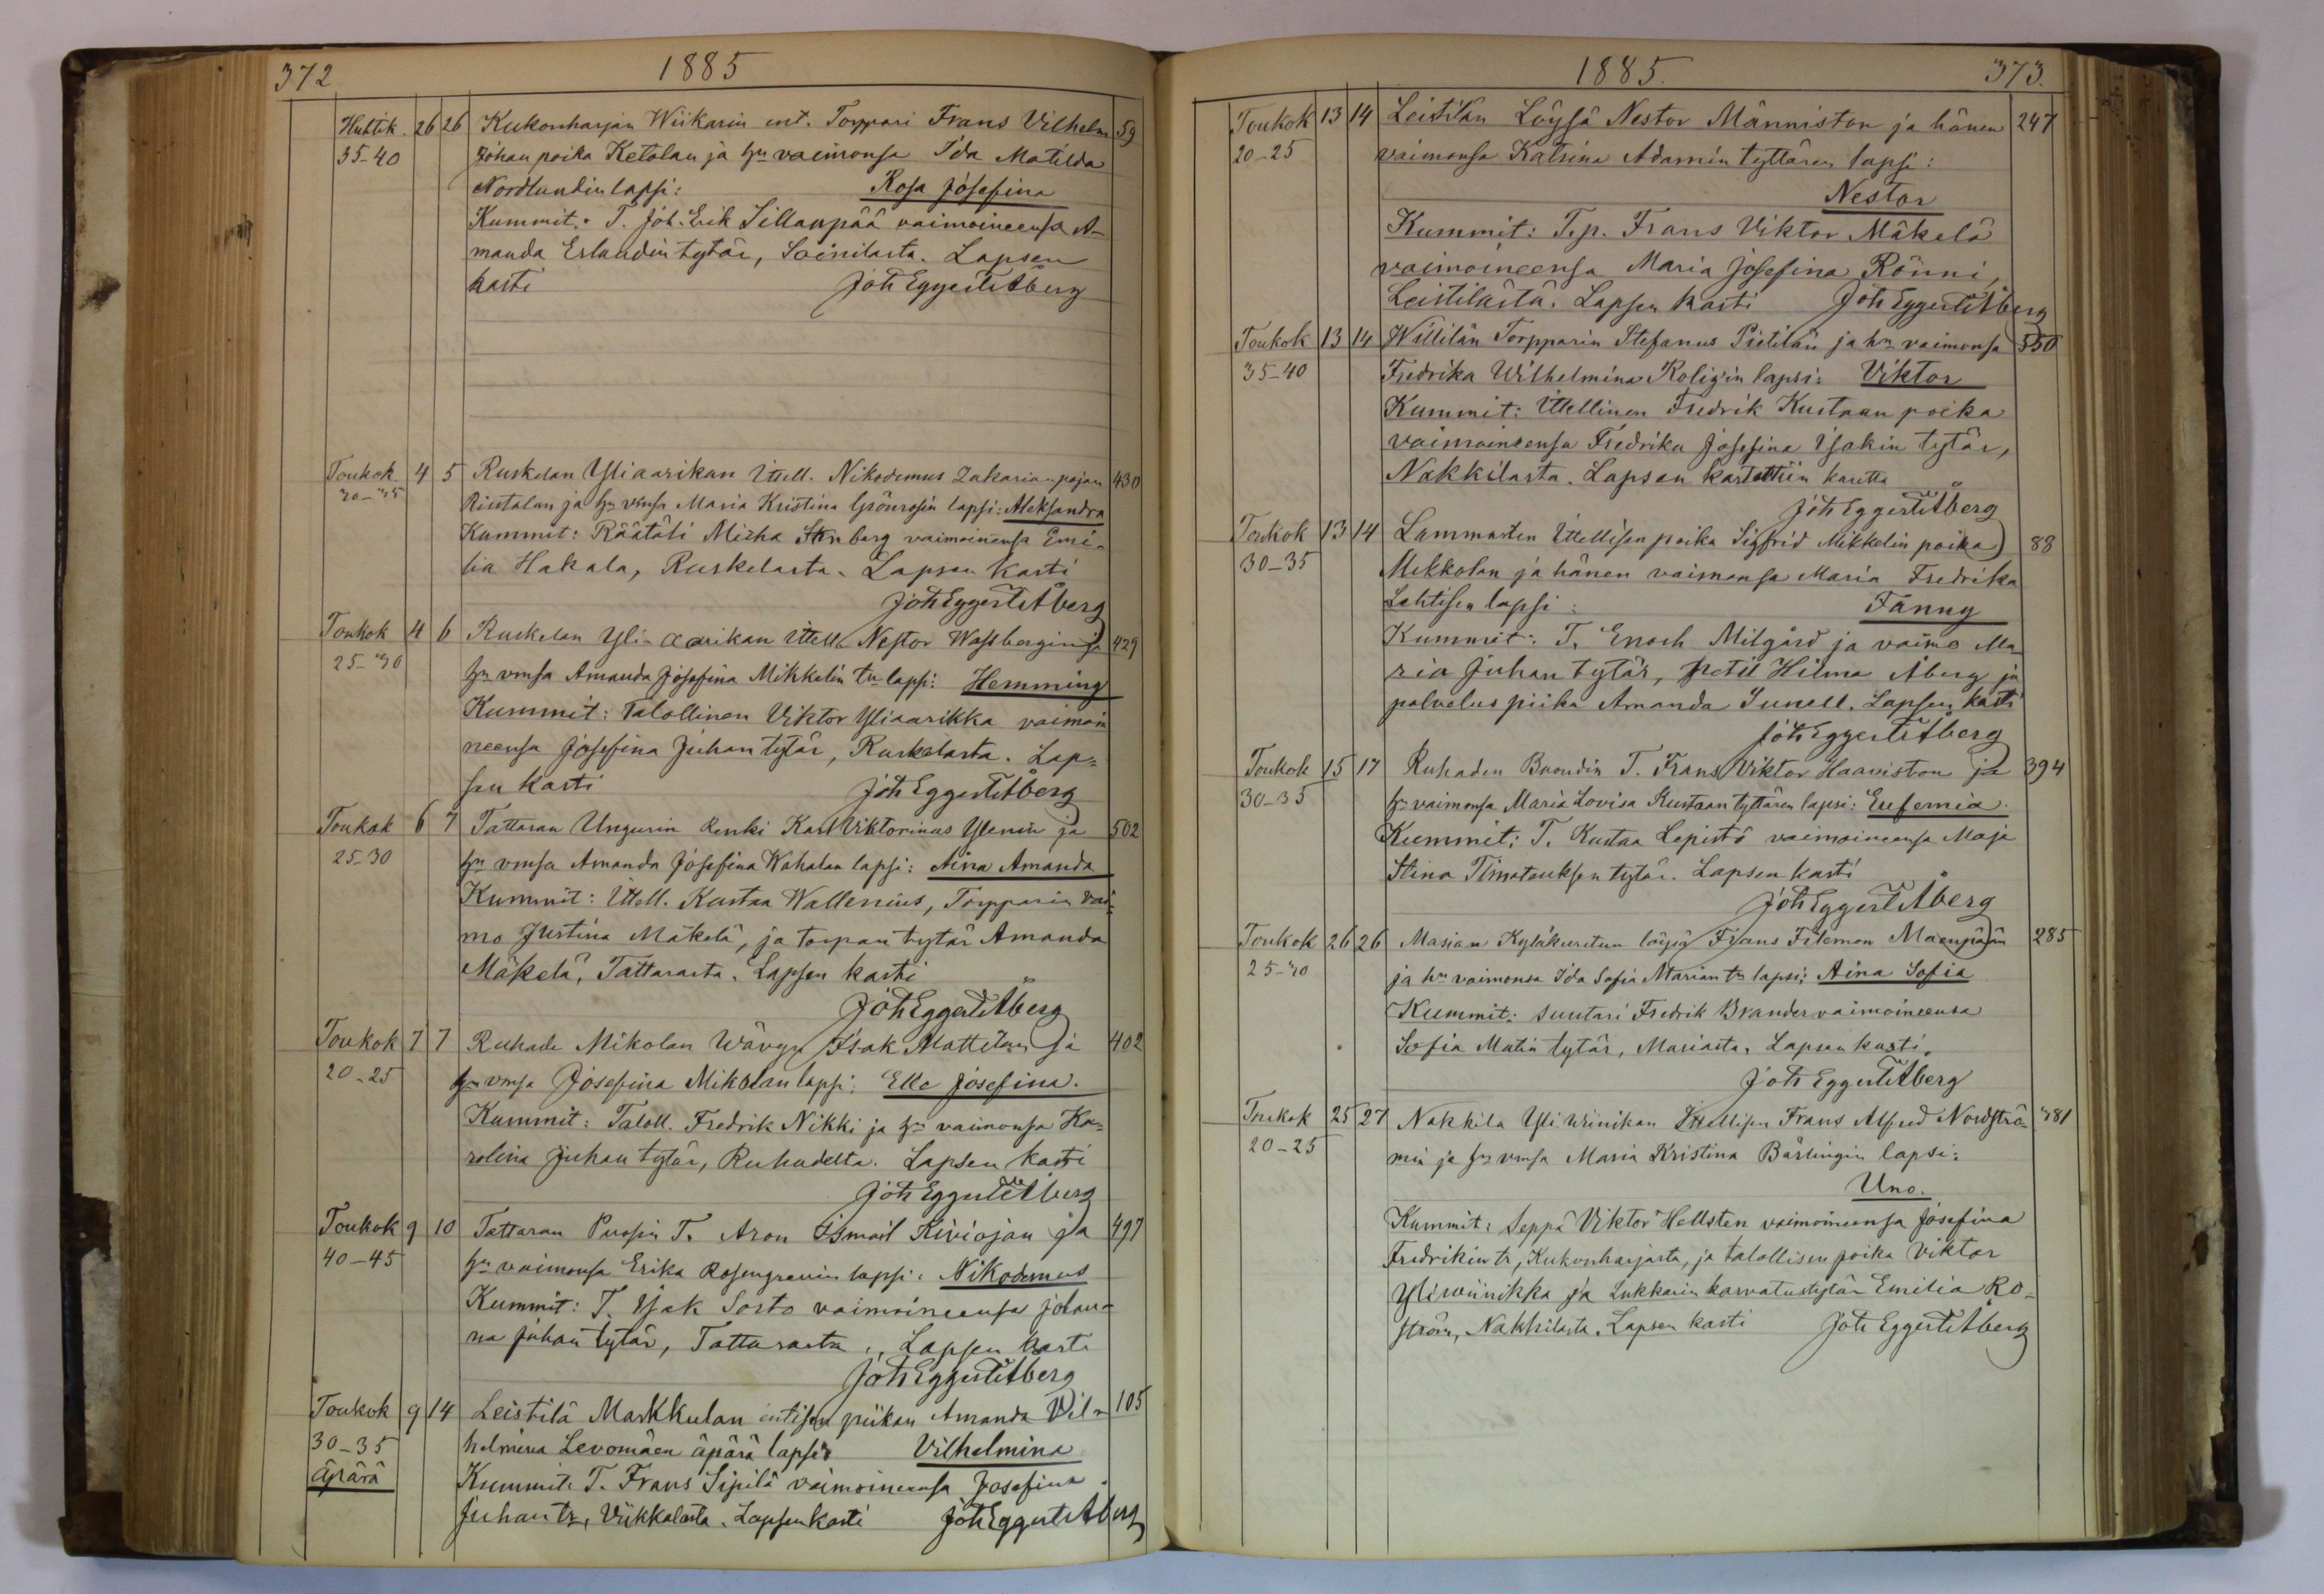 372
1885
Huhtik. 26 26 Kukonharjan Wiikarin ent. Torppari Frans Vilhelm 59
35-40 Johan poika Ketolan ja hn vaimonsa Ida Matilda
Nordlundin lapsi: Rosa Josefina
Kummit: T. Joh. Erik Sillanpää vaimoineensa A-
manda Erlandin tytär, Soinilasta. Lapsen
kasti Joh Eggert Åberg
Toukok. 4 5 Ruskelan Yliaarikan Itell. Nikodemus Zakarian pojan 430
30-35 Rintalan ja hn vmsa Maria Kristina Grönrosin lapsi: Aleksandra
Kummit: Räätäli Micha Stenberg vaimoinensa Emi-
lia Hakala, Ruskelasta. Lapsen kasti
Joh Eggert Åberg
Toukok 4 6 Ruskelan Yli-aarikan Itell. Nestor Wassbergin ja 429
25-30 hn vmsa Amanda Josefina Mikkelin tn lapsi: Hemming
Kummit: Talollinen Viktor Yliaarikka vaimoi
neensa Josefina Juhan tytär, Ruskelasta. Lap-
sen kasti Joh Eggert Åberg
Toukok 6 7 Tattaran Ungurin Renki Karl Viktorinus Ylenin ja 502
25-30 hn vmsa Amanda Josefina Wahalan lapsi: Aina Amanda
Kummit: Itell. Kustaa Wallenius, Torpparin vai-
mo Justina Mäkelä, ja torpan tytär Amanda
Mäkelä, Tattarasta. Lapsen kasti
Joh Eggert Åberg
Toukok 7 7 Ruhade Mikolan Wävyn Isak Mattilan ja 402
20-25 hn vmsa Josefina Mikolan lapsi: Elle Josefina.
Kummit: Taloll. Fredrik Nikki ja hn vaimonsa Ka-
rolina Juhan tytär, Ruhadelta. Lapsen kasti
Joh Eggert Åberg
Toukok 9 10 Tattaran Puosin T. Aron Ismail Kiviojan ja 497
40-45 hn vaimonsa Erika Rosengrenin lapsi: Nikodemus
Kummit: T. Isak Sorto vaimoineensa Johan-
na Juhan tytär, Tattarasta. Lapsen kasti
Joh Eggert Åberg
Toukok 9 14 Leistilä Markkulan entisen piikan Amanda Vil- 105
30-35 helmina Levomäen äpärä lapsi: Vilhelmina
äpärä Kummit: T. Frans Sipilä vaimoineensa Josefina
Juhan tr, Viikkalasta. Lapsen kasti Joh Eggert Åberg
1885.
373.
Toukok 13 14 Leistilän Löysä Nestor Männistön ja hänen 247
20-25 vaimonsa Katrina Adamin tyttären lapsi:
Nestor
Kummit: T.p. Frans Viktor Mäkelä
vaimoineensa Maria Josefina Rönni,
Leistilästä. Lapsen kasti Joh Eggert Åberg
Toukok 13 14 Willilän Torpparin Stefanus Pietilän ja hn vaimonsa 550
35-40 Fredrika Wilhelmina Roligin lapsi: Viktor
Kummit: Itellinen Fredrik Kustaan poika
vaimoineensa Fredrika Josefina Isakin tytär,
Nakkilasta. Lapsen kastettiin kautta
Joh Eggert Åberg
Toukok 13 14 Lammasten Itellisen poika Sigfrid Mikkelin poika 88
30-35 Mikkolan ja hänen vaimonsa Maria Fredrika
Lehtisen lapsi: Fanny
Kummit: T. Enoch Milgård ja vaimo Ma-
ria Juhan tytär, Hilma Åberg ja
palvelus piika Amanda Sunell. Lapsen kasti
Joh Eggert Åberg
Toukok 15 17 Ruhaden Buondin T. Frans Viktor Haaviston ja 394
30-35 hn vaimonsa Maria Lovisa Kustaan tyttären lapsi: Eufemia.
Kummit: T. Kustaa Lepistö vaimoineensa Maja
Stina Timoteuksen tytär. Lapsen kasti
Joh Eggert Åberg
Toukok 26 26 Masian Kyläkuritun löysä Frans Filemon Mäenpään 285
25-30 ja hn vaimonsa Ida Sofia Marian tn lapsi: Aina Sofia
Kummit: Suutari Fredrik Brander vaimoineensa
Sofia Matin tytär, Masiasta. Lapsen kasti.
Joh Eggert Åberg
Toukok 25 27 Nakkila Yli Wiinikan Itellisen Frans Alfred Nordströ- 381
20-25 min ja hn vmsa Maria Kristina Bärlingin lapsi:
Uno.
Kummit: Seppä Viktor Hellsten vaimoineensa Josefina
Fredrikin tr, Kukonharjasta, ja talollisen poika Viktor
Yliwiinikka ja Lukkarin kasvatustytär Emilia Ro-
ström, Nakkilasta. Lapsen kasti Joh Eggert Åberg